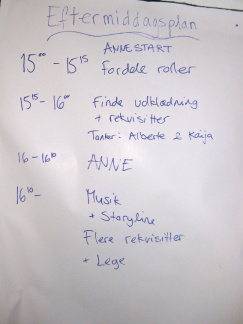 Eftermiddagsplan
ANNE START
15⁰⁰ - 15¹⁵ fordele roller
15¹⁵ - 16⁰⁰ Finde udklædning
+ rekvisitter
Tanter: Alberte & Kaija
16 - 16¹⁰ ANNE
16¹⁰ - Musik
+ Storyline
Flere rekvisitter
+ Lege